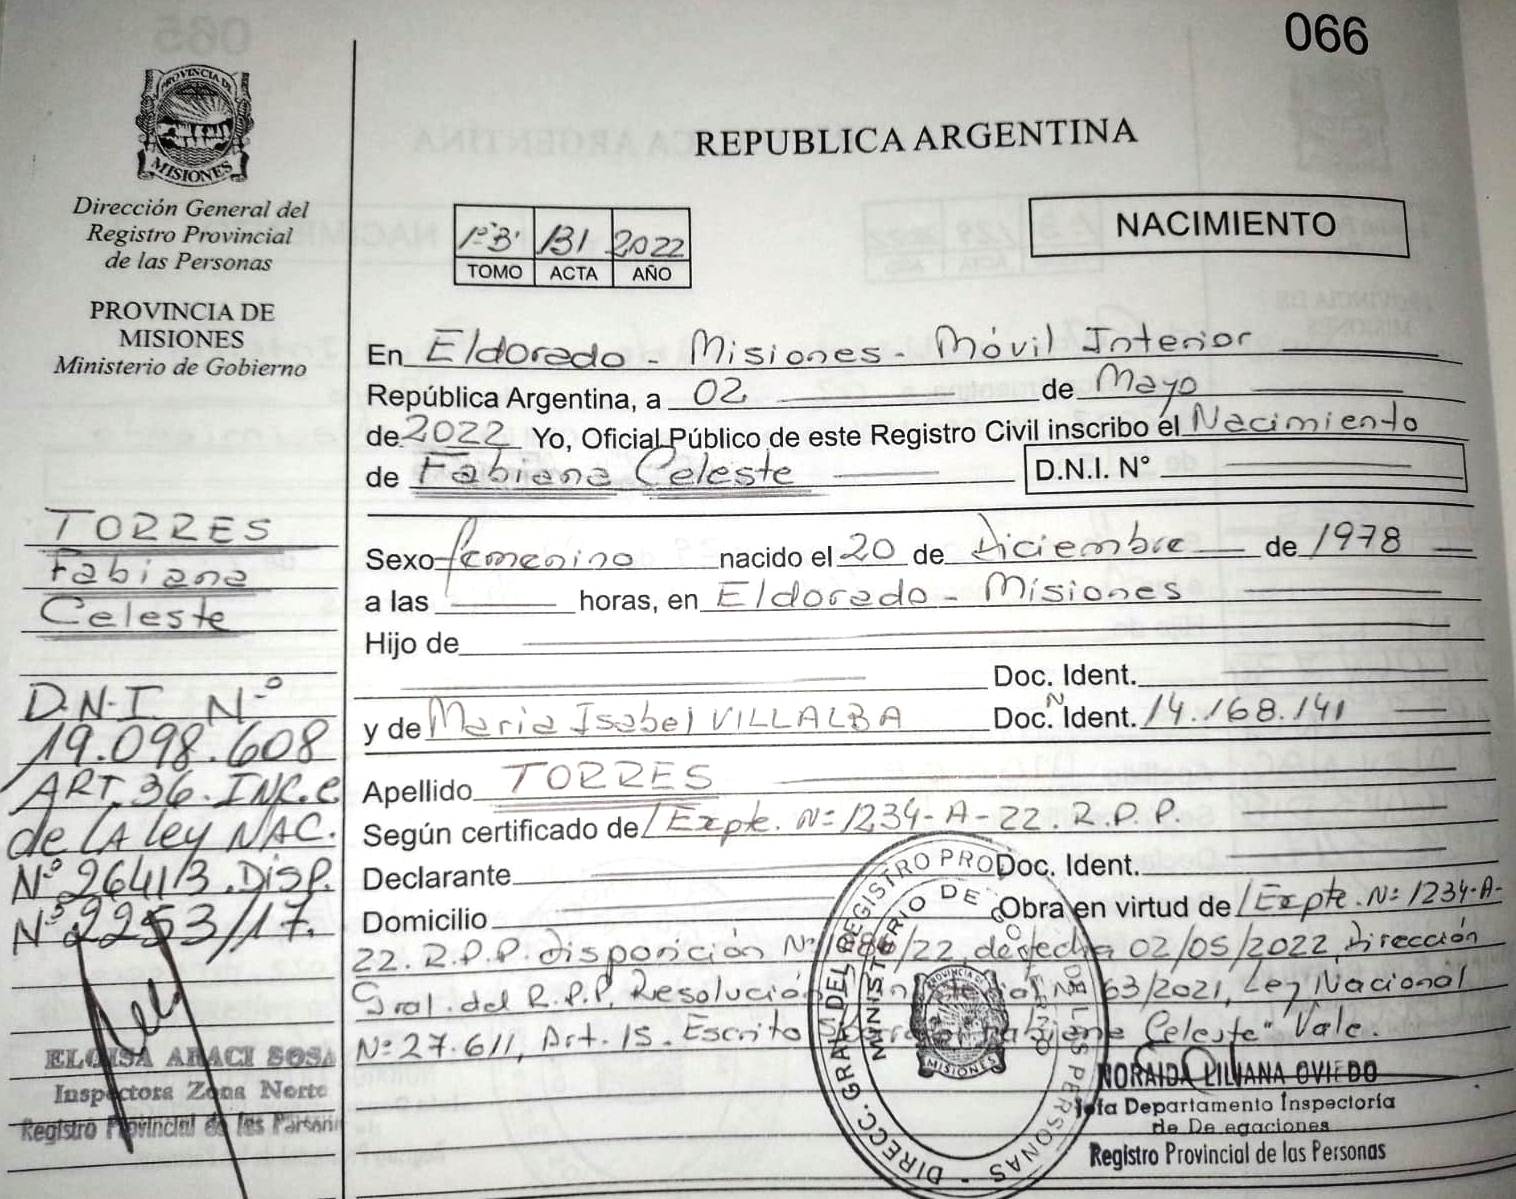 066
PROVINCIA DE
MISIONES
Dirección General del
Registro Provincial
de las Personas
PROVINCIA DE
MISIONES
Ministerio de Gobierno
REPUBLICA ARGENTINA
1º"B" 131 2022
TOMO ACTA AÑO
NACIMIENTO
En Eldorado - Misiones - Móvil Interior
República Argentina, a 02 de Mayo
de 2022 Yo, Oficial Público de este Registro Civil inscribo el Nacimiento
de Fabiana Celeste D.N.I. N°
Sexo femenino nacido el 20 de Diciembre de 1978
a las horas, en Eldorado - Misiones
Hijo de
Doc. Ident.
y de Maria Isabel VILLALBA Doc. Ident. 14.168.141
Apellido TORRES
Según certificado de Expte. Nº 1234-A-22. R.P.P.
Declarante Doc. Ident.
Domicilio Obra en virtud de Expte. Nº 1234-A-
22. R.P.P. disposición Nº /22, de fecha 02/05/2022, Dirección
Gral. del R.P.P. Resolución Nº 63/2021, Ley Nacional
Nº 27.611, Art. 15. Escrito Fabiana Celeste" Vale.
TORRES
Fabiana
Celeste
D.N.I. Nº
19.098.608
ART. 36. INC. C
de LA ley NAC.
Nº 26413. DISP.
Nº 2253/17.
ELOISA ARACI SOSA
Inspectora Zona Norte
Registro Provincial de las Personas
DIRECC. GRAL. DEL REGISTRO PROV. DE LAS PERSONAS
MINISTERIO DE GOBIERNO
PROVINCIA DE
MISIONES
NORAIDA LILIANA OVIEDO
Jefa Departamento Inspectoría
de De egaciones
Registro Provincial de las Personas